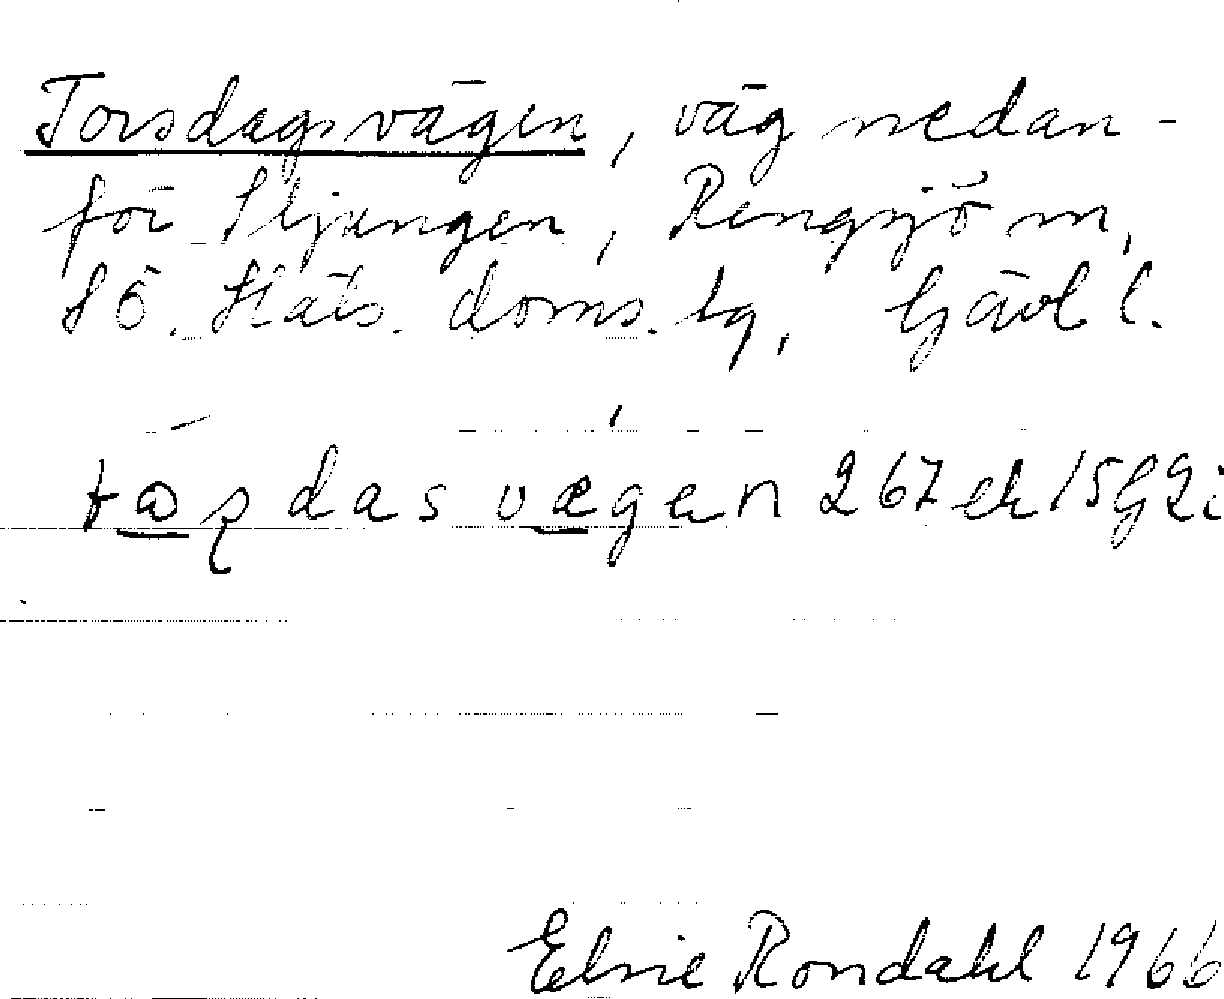 Torsdagsvägen, väg nedan-
för Stljungen, Rengsjö sn,
SÖ. Häls. doms. tg, Gävl l.
tɷʂdasvægan 267 ek 15G2i
Elsie Rondahl 1966